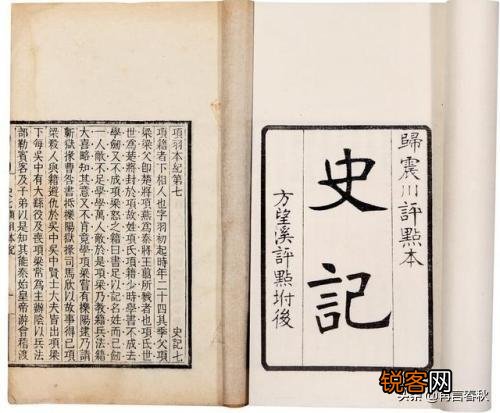 歸震川評點本
史記
方望溪評點坿後
項羽本紀第七
史記七
項籍者下相人也字羽初起時年二十四其季父項
梁梁父卽楚將項燕爲秦將王翦所戮者也項氏世
世爲楚將封於項故姓項氏項籍少時學書不成去
學劍又不成項梁怒之籍曰書足以記名姓而已劍
一人敵不足學學萬人敵於是項梁乃教籍兵法籍
大喜略知其意又不肯竟學項梁嘗有櫟陽逮乃請
蘄獄掾曹咎書抵櫟陽獄掾司馬欣以故事得已項
梁殺人與籍避仇於吳中吳中賢士大夫皆出項梁
下每吳中有大繇役及喪項梁常爲主辦陰以兵法
部勒賓客及子弟以是知其能秦始皇帝游會稽渡
锐客网
头条 @南言春秋